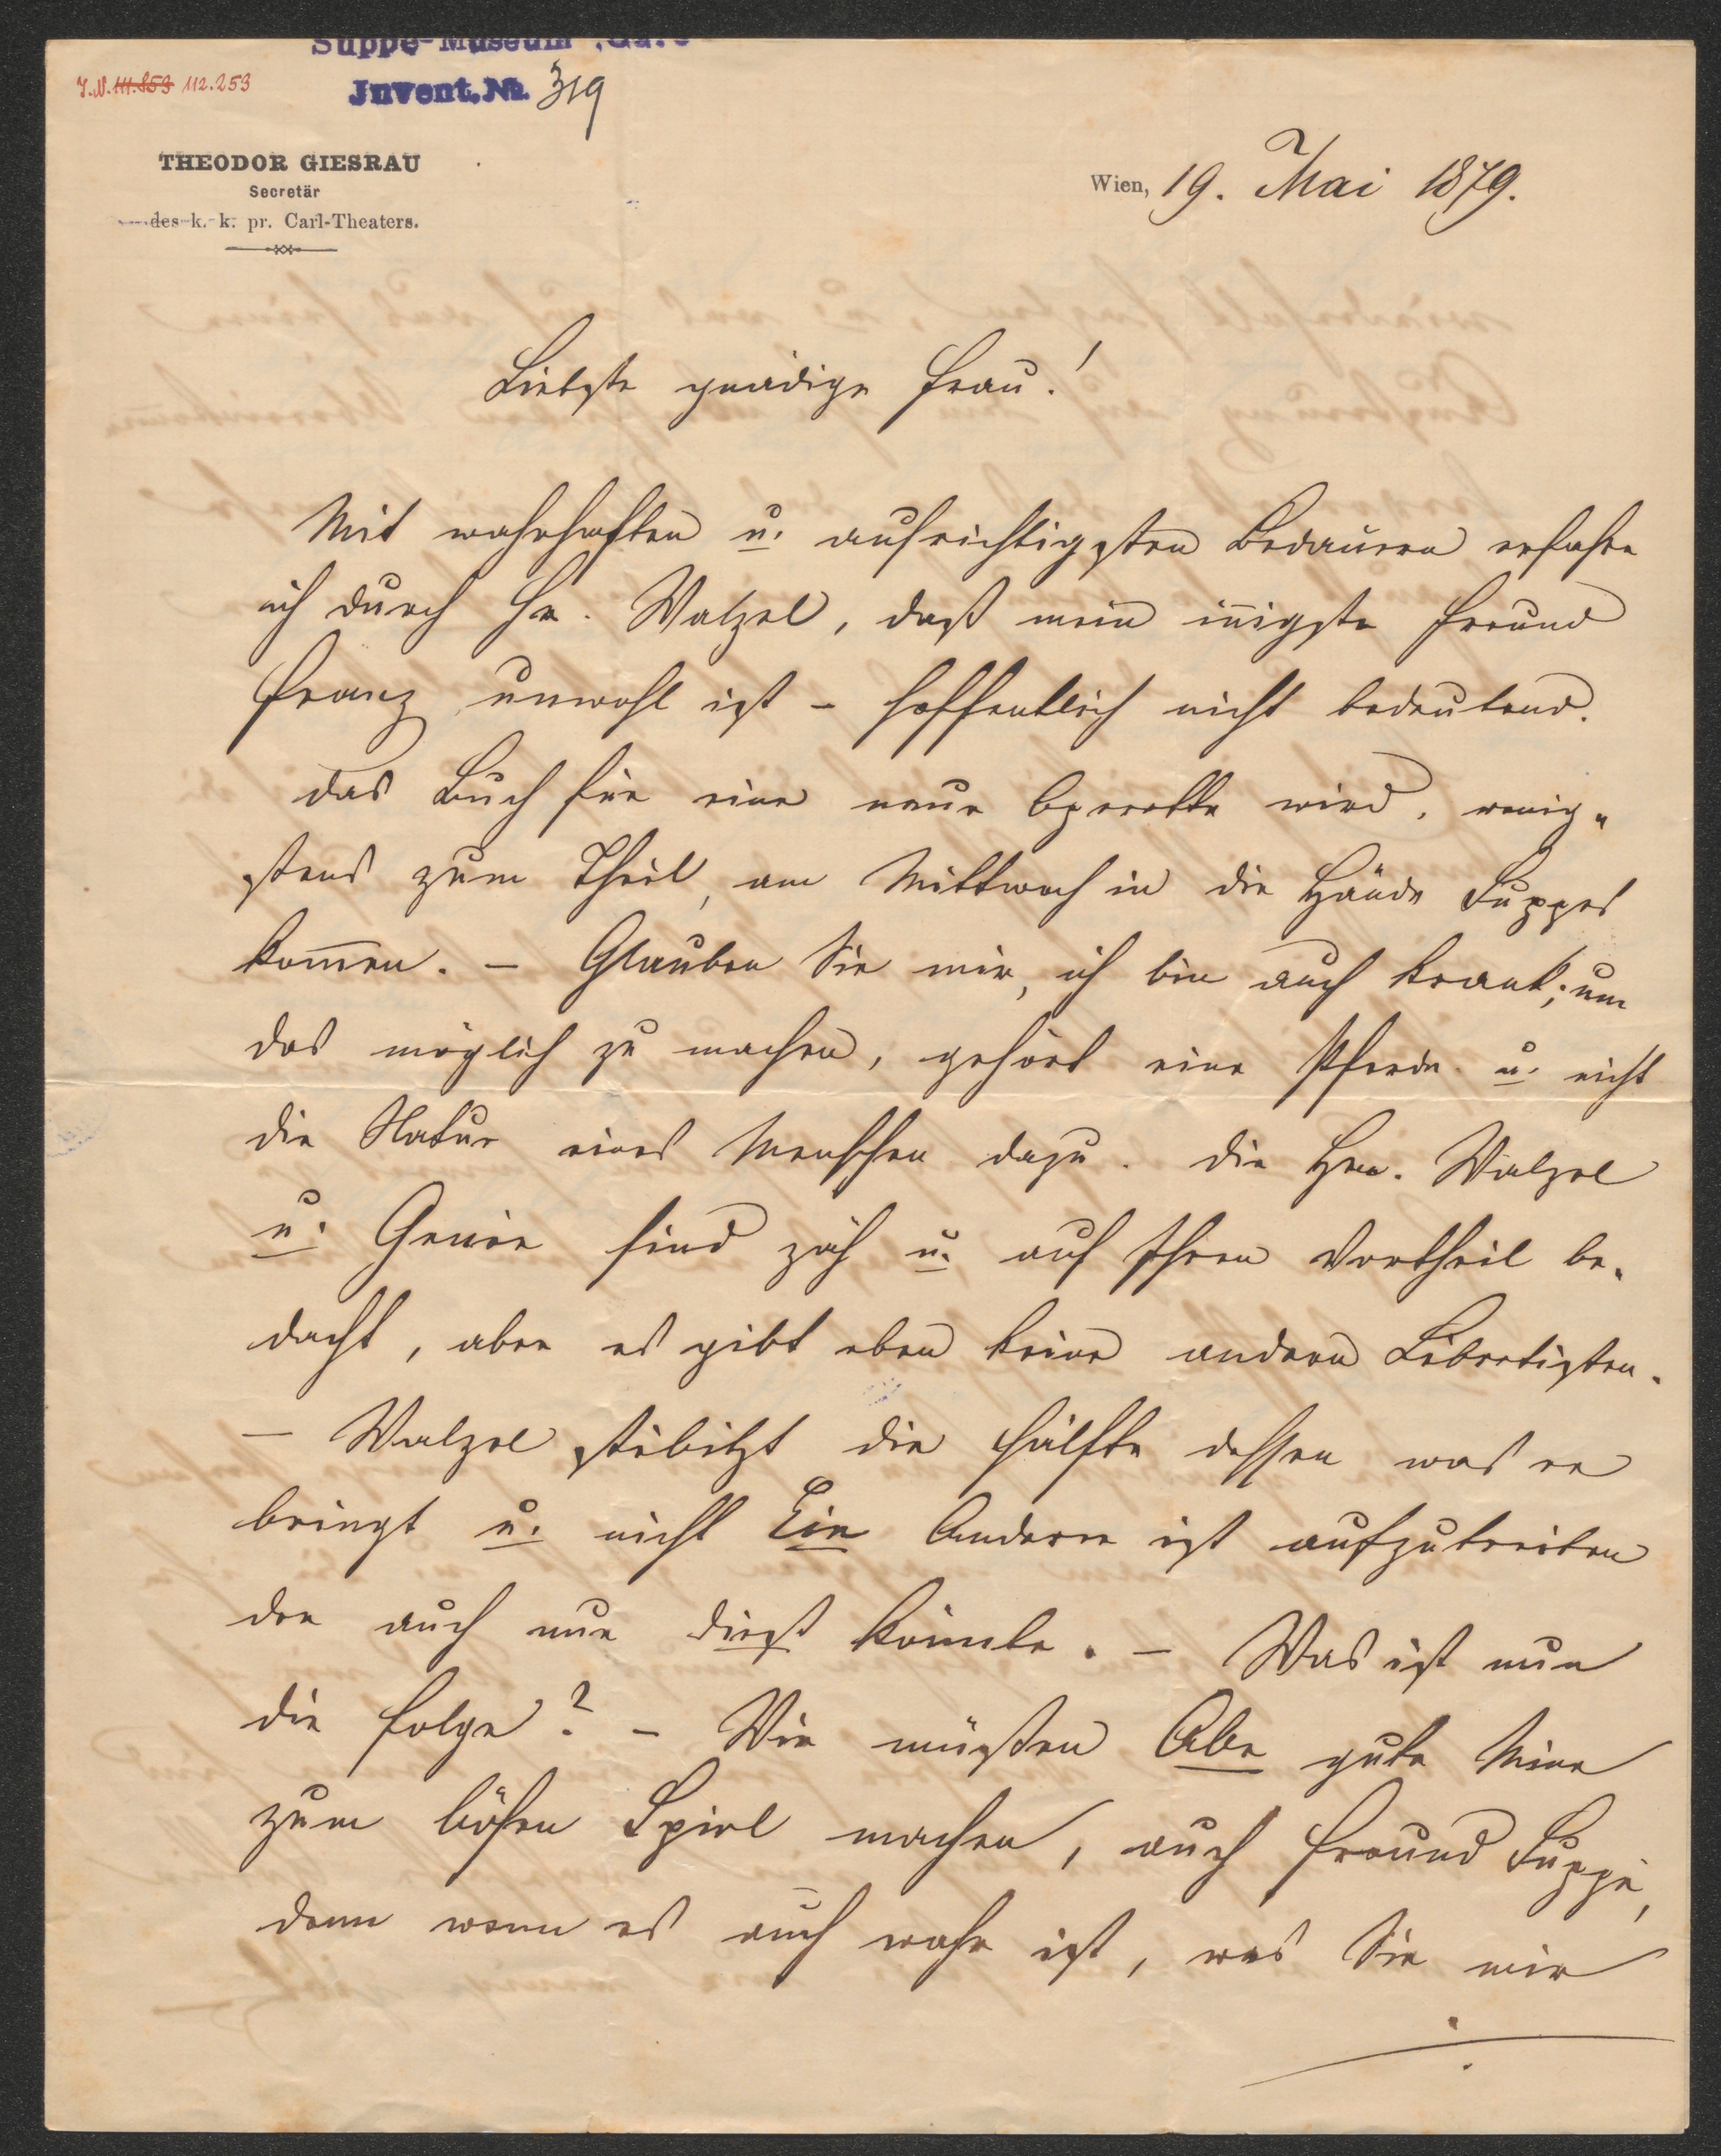 Suppe-Museum
J.N. 111.853 112.253
Invent. No. 319
THEODOR GIESRAU
Secretär
des k. k. pr. Carl-Theaters.
Wien, 19. Mai 1879.
Liebste gnädige Frau!
Mit wahrhaften u. aufrichtigsten Bedauern erfahre
ich durch Hr. Walzel, daß mein in̅igste Freund
Franz unwohl ist – hoffentlich nicht bedeutend.
Das Buch für eine neue Operette wird, wenig-
stens zum Theil, am Mittwoch in die Hände Suppes
kom̅en. – Glauben Sie mir, ich bin auch krank; um
das möglich zu machen, gehört eine Pferde- u. nicht
die Natur eines Menschen dazu. Die Hrn. Walzel
u. Genée sind zäh u. auf Ihren Vortheil be-
dacht, aber es gibt eben keine andern Libretisten.
– Walzel stibitzt die Hälfte dessen was er
bringt u. nicht Ein Anderer ist aufzutreiben
der auch nur dieß könnte. – Was ist nun
die Folge? – Wir müßen Alle gute Mine
zum bösen Spiel machen, auch Freund Suppé,
denn wenn es auch wahr ist, was Sie mir